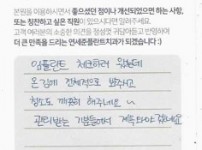 본원을 이용하시면서 좋으셨던 점이나 개선되었으면 하는 사항,
또는 칭찬하고 싶은 직원이 있으시다면 일해주세요.
고객 여러분의 소중한 의견을 정성껏 귀담아듣고 반영하여
더 큰 만족을 드리는 연세준플란트치과가 되겠습니다 :)
임플란트 체크하러 왔는데
온김에 전체적으로 봐주시고
칭찬도 꺼내 해주네요
관리받는 기분들어서 계속 다니고 있네요